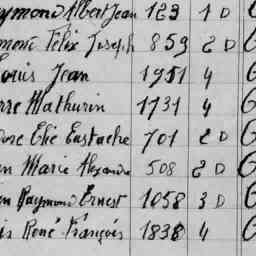 Albert Jean 123 1 D
Félix Joseph 859 2 D
Louis Jean 1951 4
Mathurin 1731 4
Elie Eustache 701 2 D
Marie Alexandre 508 2 D
Raymond Ernest 1058 3 D
René François 1838 4